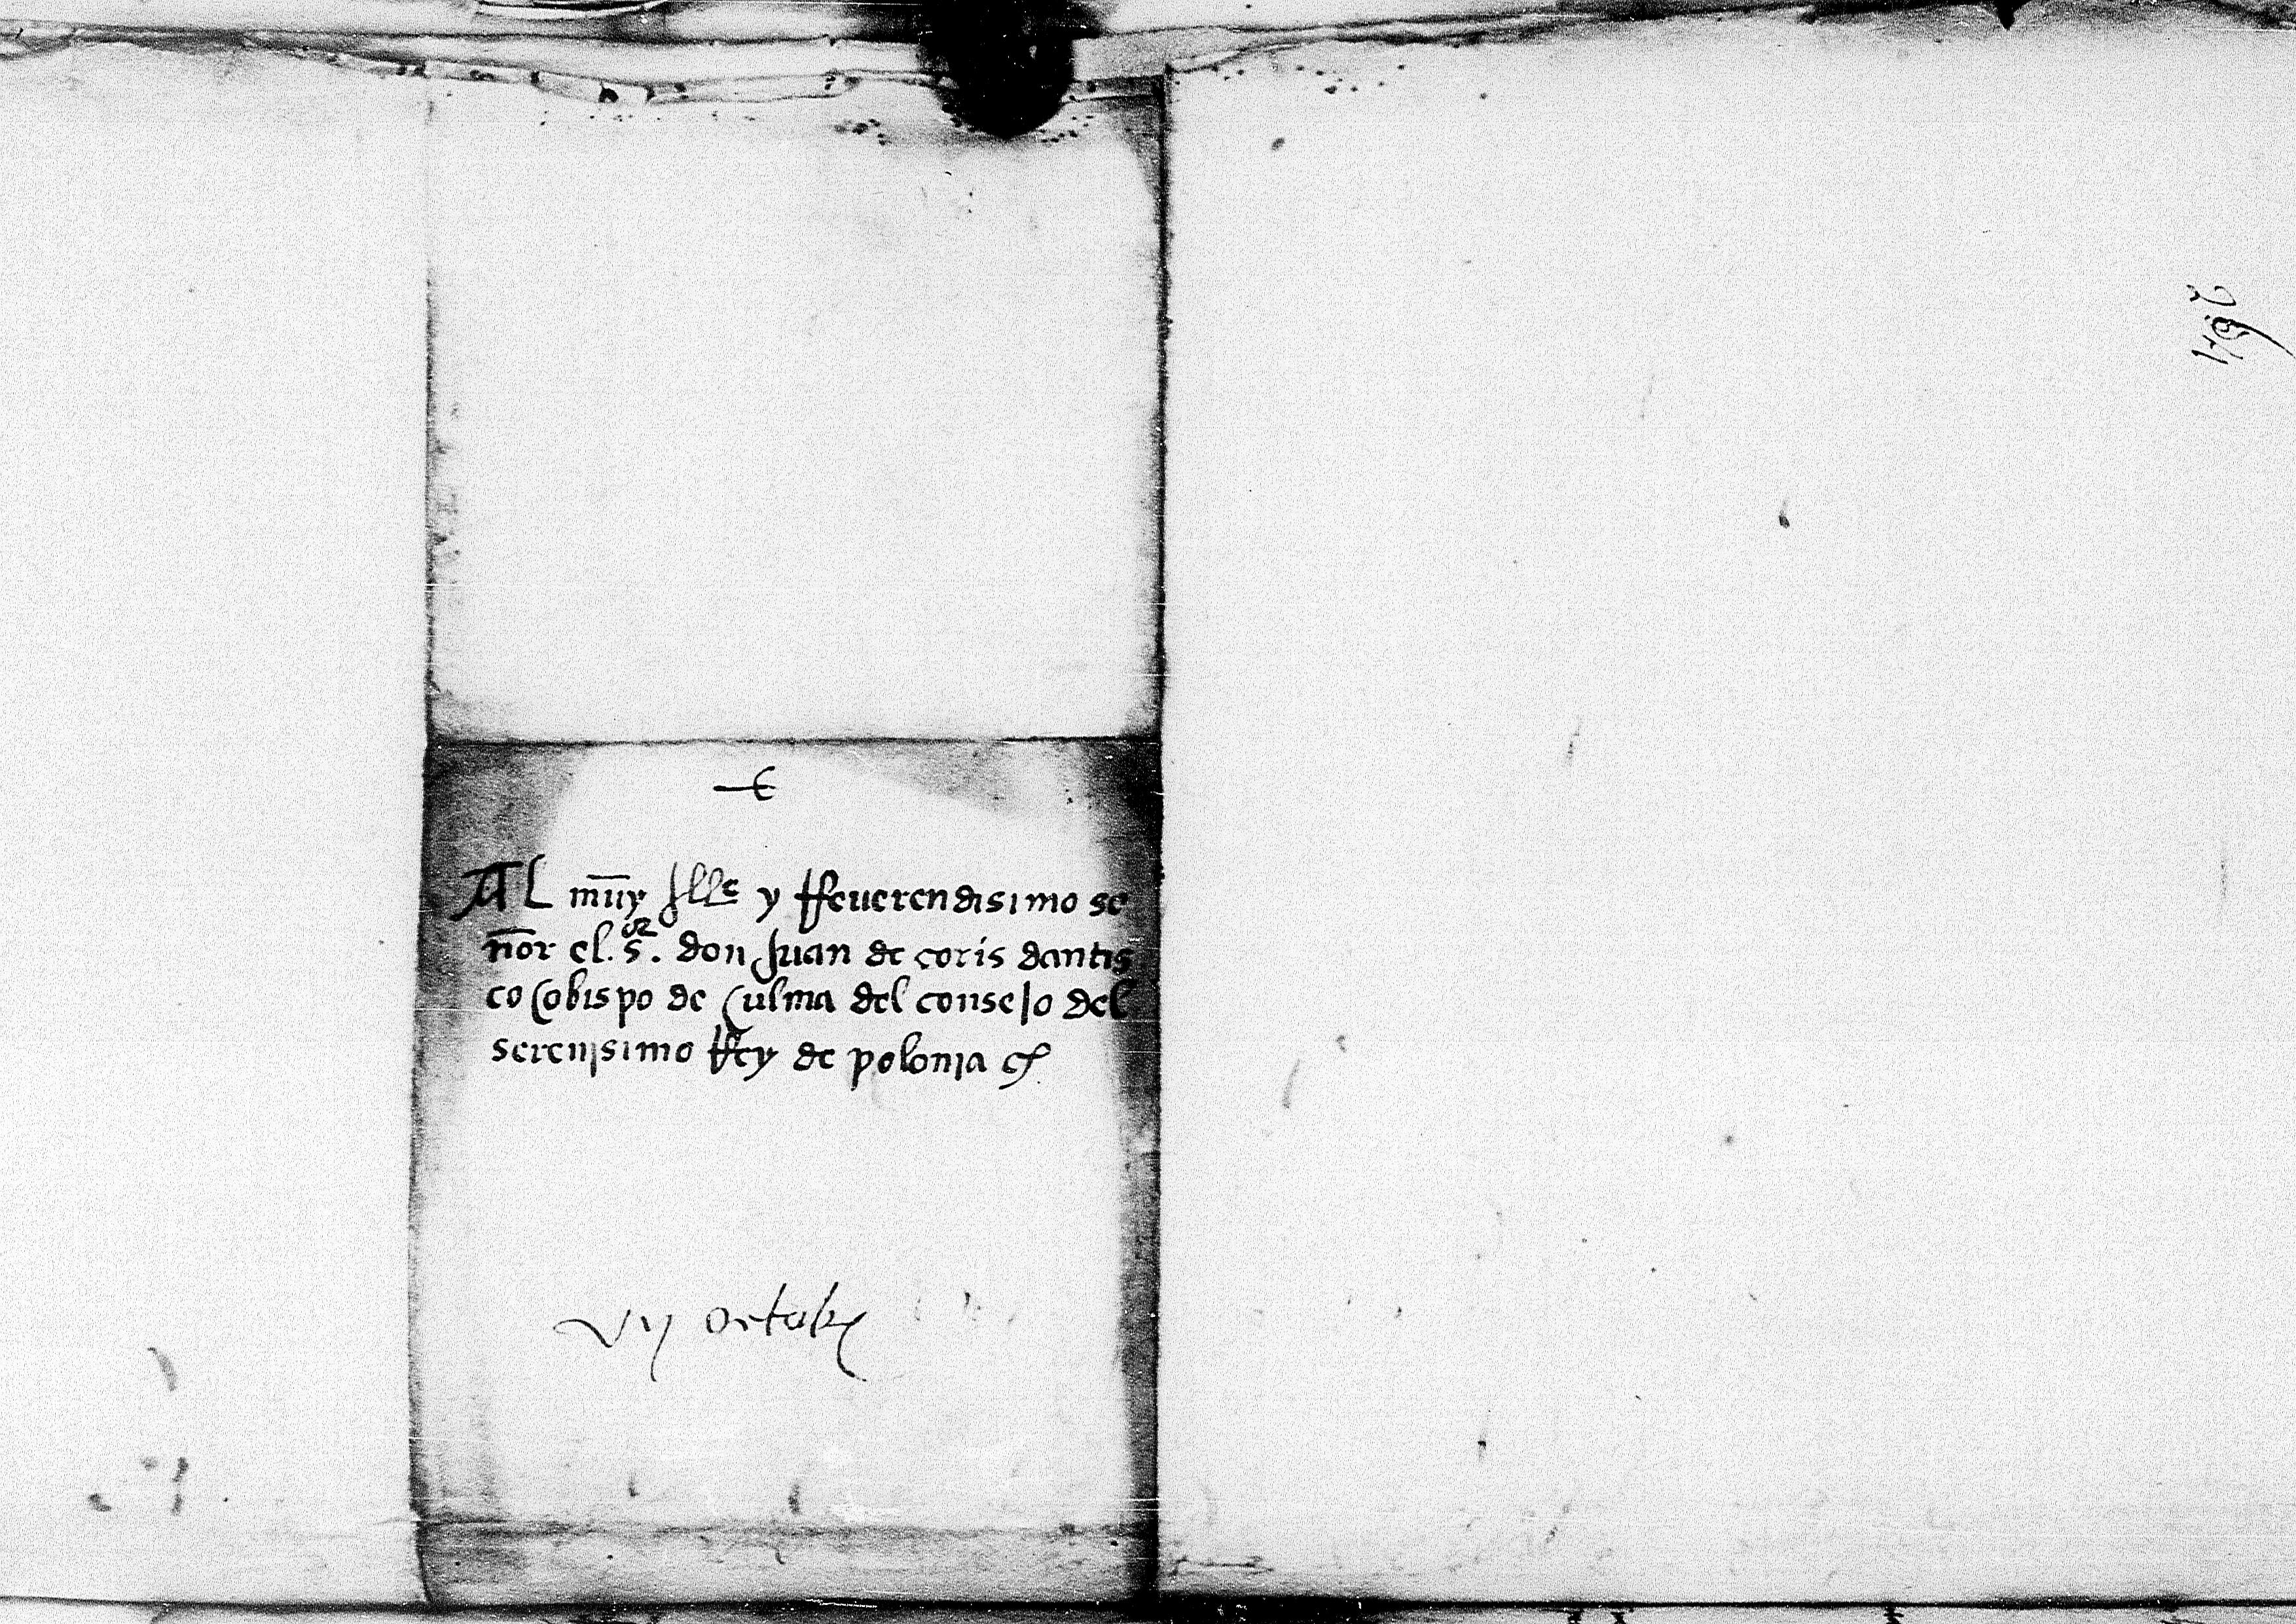 Al muy Ille y Reuerendisimo se
ñor el. sor. don Juan de coris dantis
co Cobispo de Culma del consejo del
serenisimo Rey de polonia
vij octobr